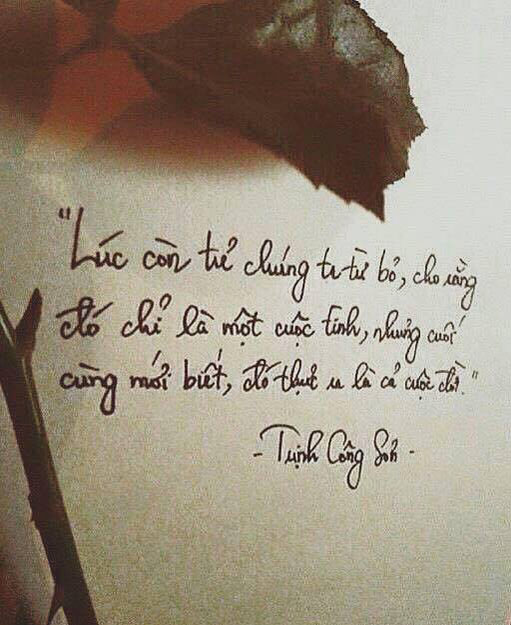 "Lúc còn trẻ chúng ta từ bỏ, cho rằng
đó chỉ là một cuộc tình, nhưng cuối
cùng mới biết, đó thực ra là cả cuộc đời."
- Trịnh Công Sơn -